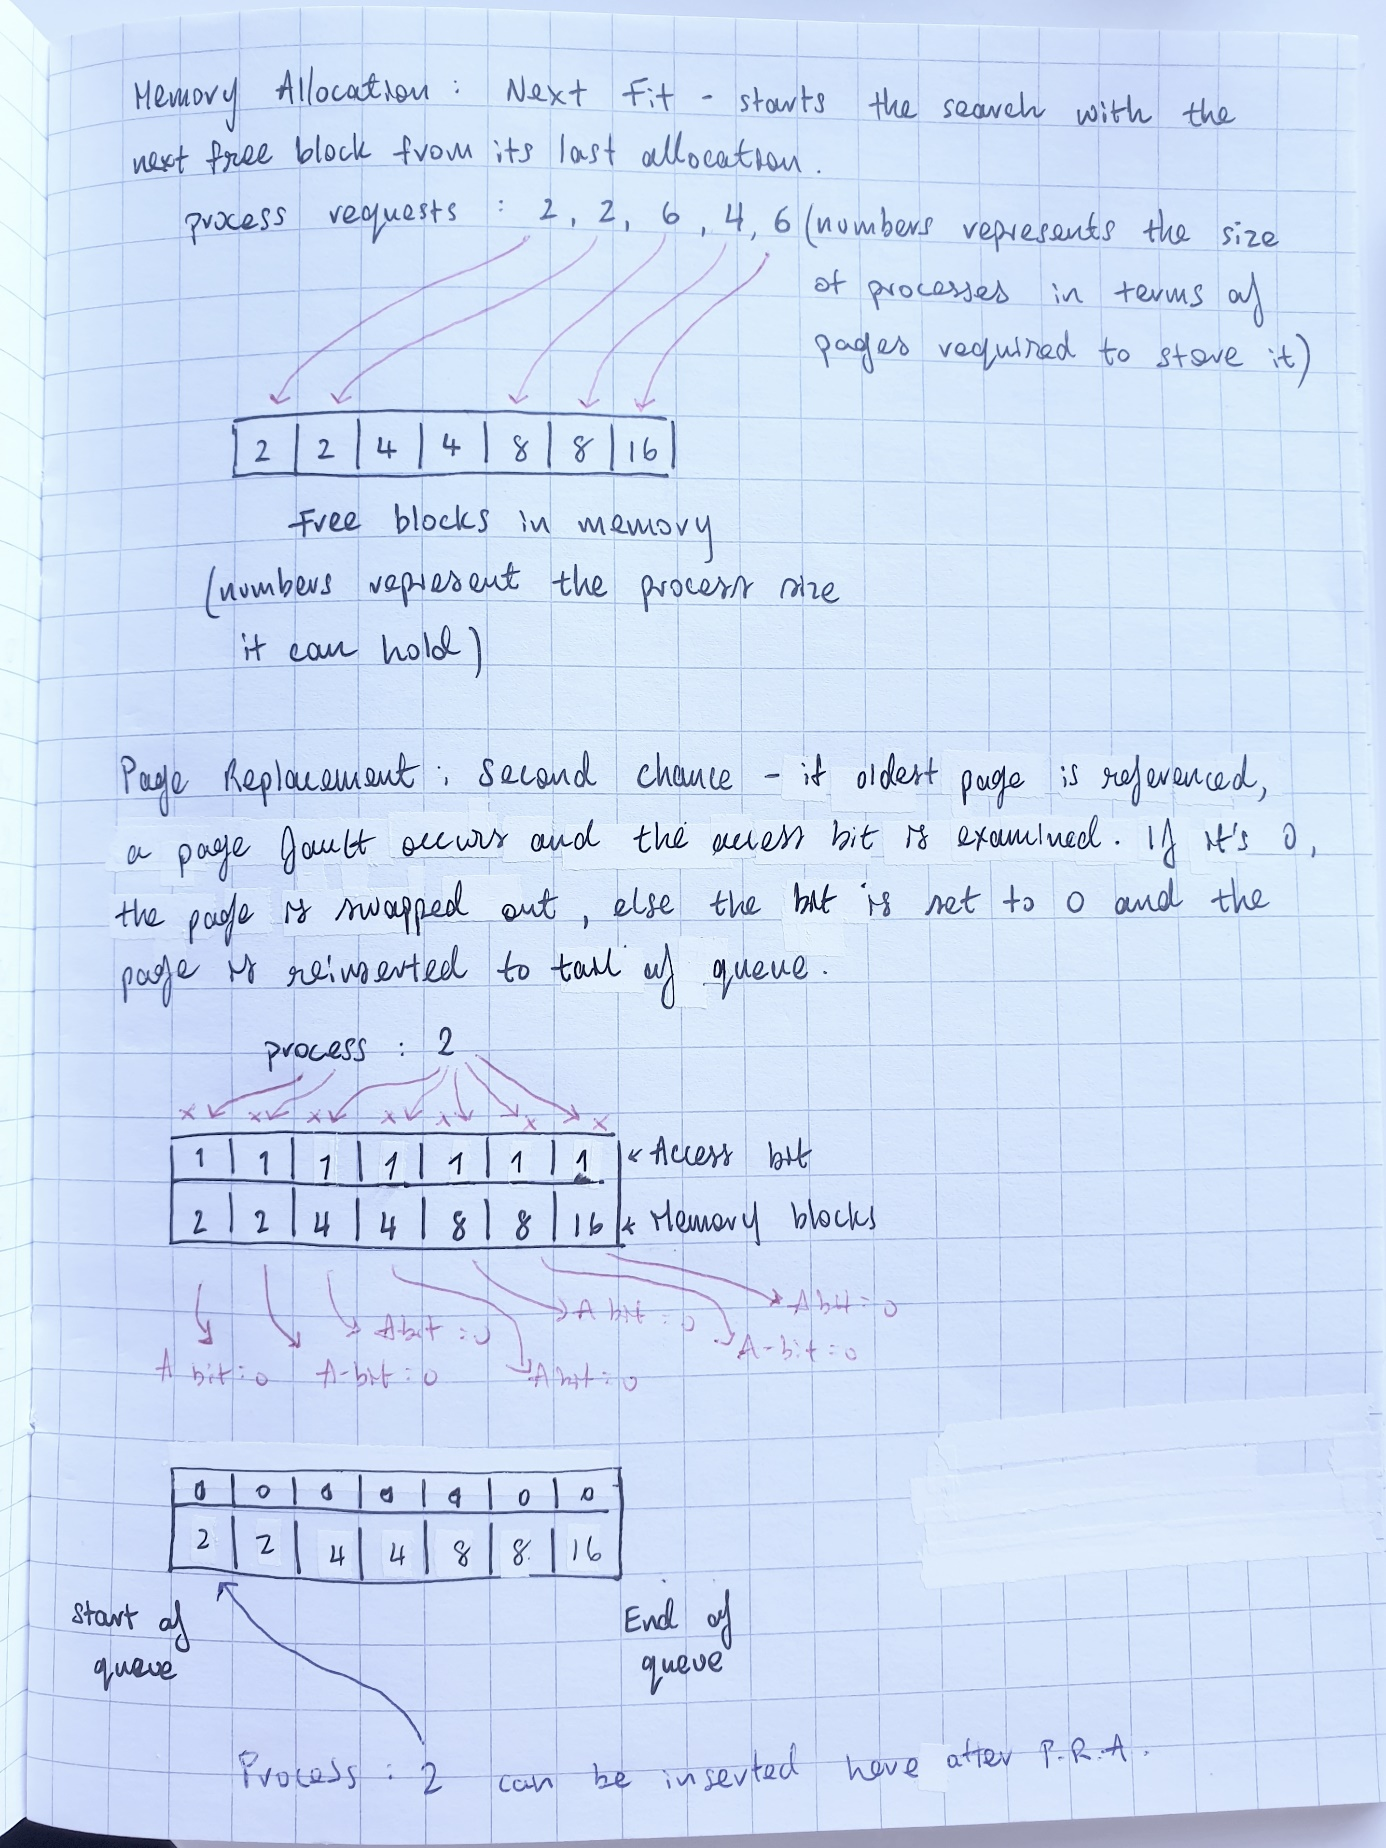 Memory Allocation : Next Fit - starts the search with the
next free block from its last allocation.
process requests : 2, 2, 6, 4, 6 (numbers represents the size
of processes in terms of
pages required to store it)
2 2 4 4 8 8 16
Free blocks in memory
(numbers represent the process size
it can hold)
Page Replacement : Second chance - if oldest page is referenced,
a page fault occurs and the access bit is examined. If it's 0,
the page is swapped out, else the bit is set to 0 and the
page is reinserted to tail of queue.
process : 2
x x x x x x x
1 1 1 1 1 1 1 Access bit
2 2 4 4 8 8 16 Memory blocks
A bit = 0
A bit : 0
A bit : 0
A-bit : 0
A bit : 0 A-bit : 0 A bit : 0
0 0 0 0 0 0 0
2 2 4 4 8 8 16
Start of
queue
End of
queue
Process : 2 can be inserted here after P.R.A.